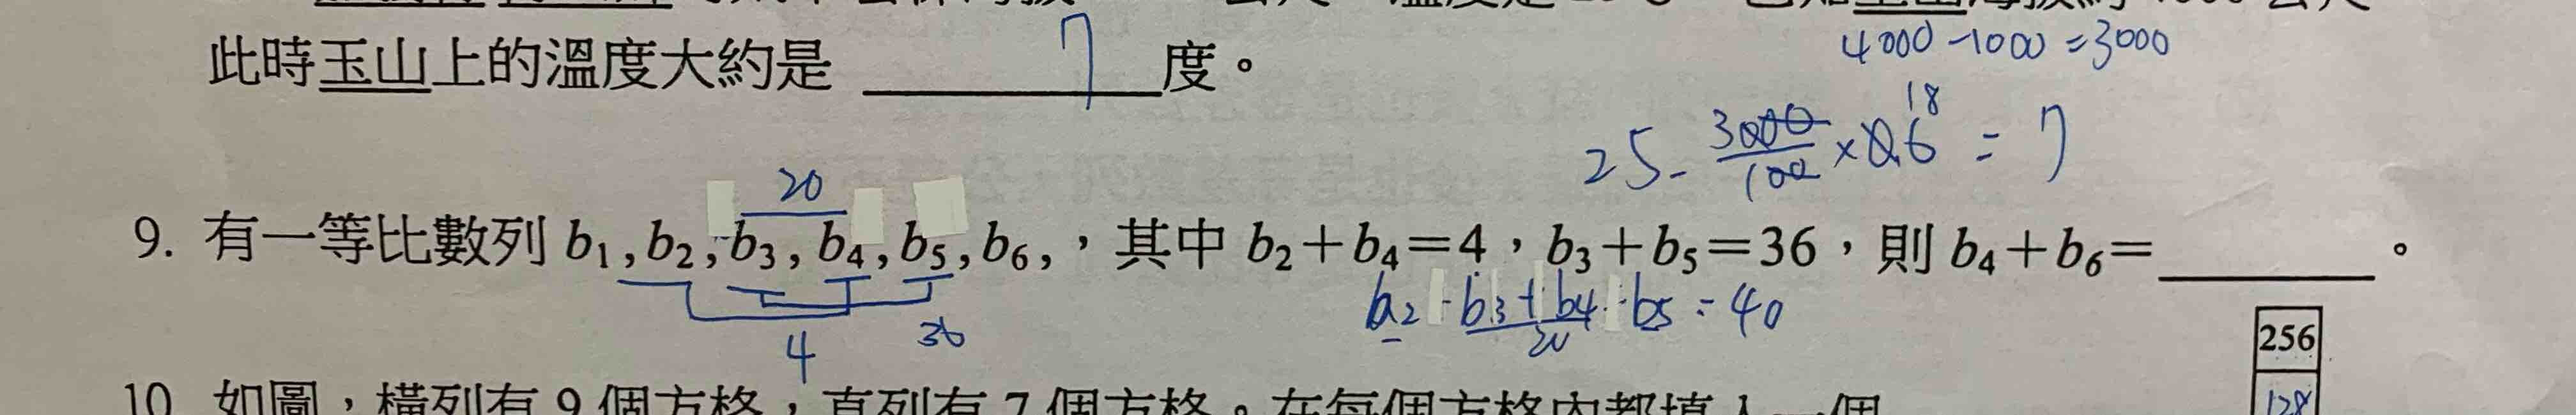 此時玉山上的溫度大約是 7 度。
4000-1000=3000
25-3000/100×0.6 18 = 7
20
9. 有一等比數列 b₁,b₂,b₃,b₄,b₅,b₆,,其中 b₂+b₄=4,b₃+b₅=36,則 b₄+b₆=______。
4 36
b₂ b₃+b₄ b₅=40
20
256
10. 如圖,橫列有 9 個方格,直列有 7 個方格。在每個方格內都填入一個
128